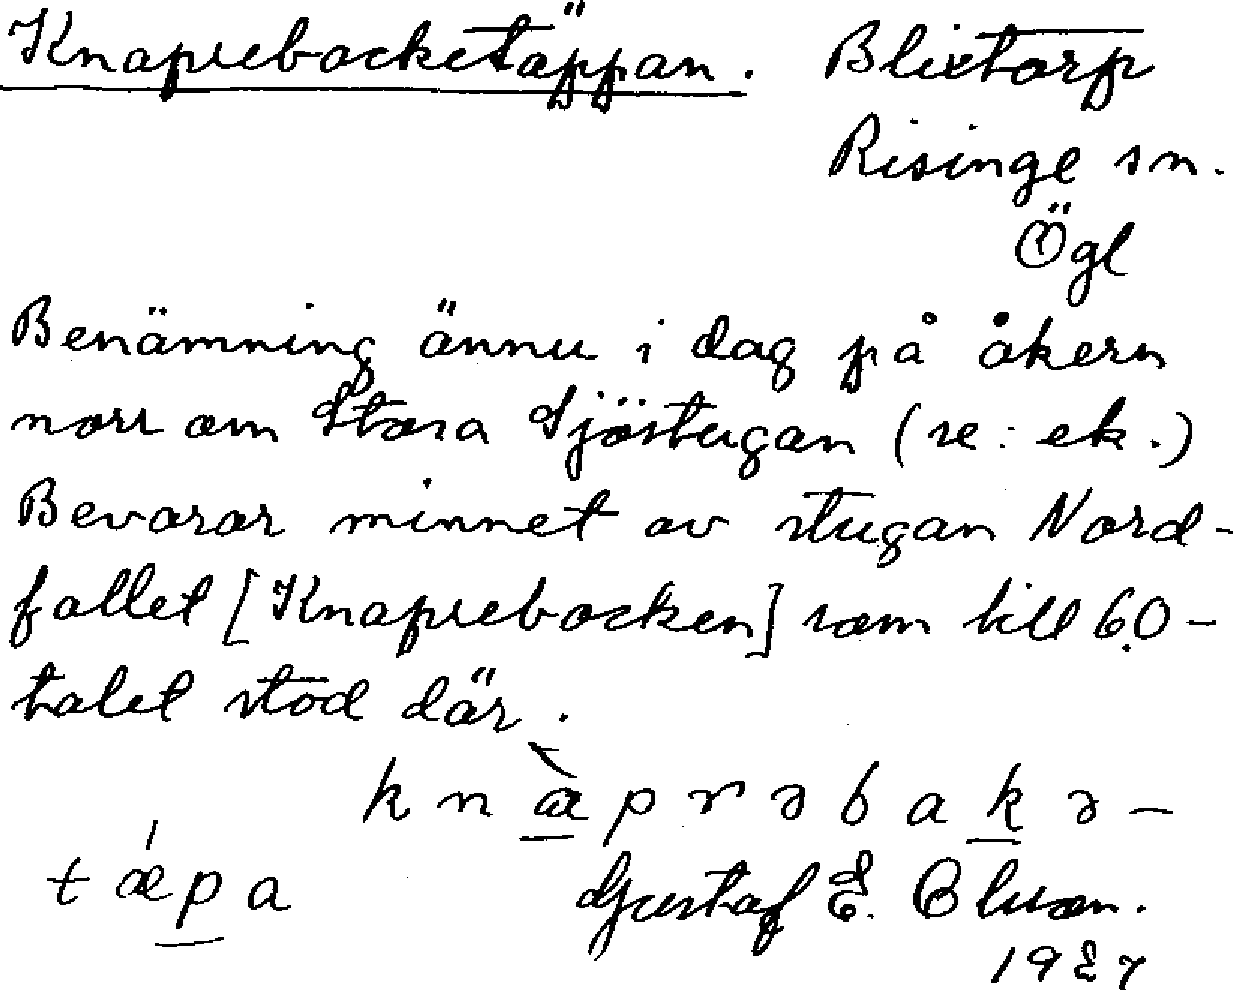 Knaprebocketäppan. Blixtorp
Risinge sn.
Ögl
Benämning ännu i dag på åkern
norr om Stora Sjöstugan (se: ek.)
Bevarar minnet av stugan Nord-
fallet [Knaprebocken] som till 60-
talet stod där.
knæ̀prəbakə-
tǽpa Gustaf E. Bluom.
1927